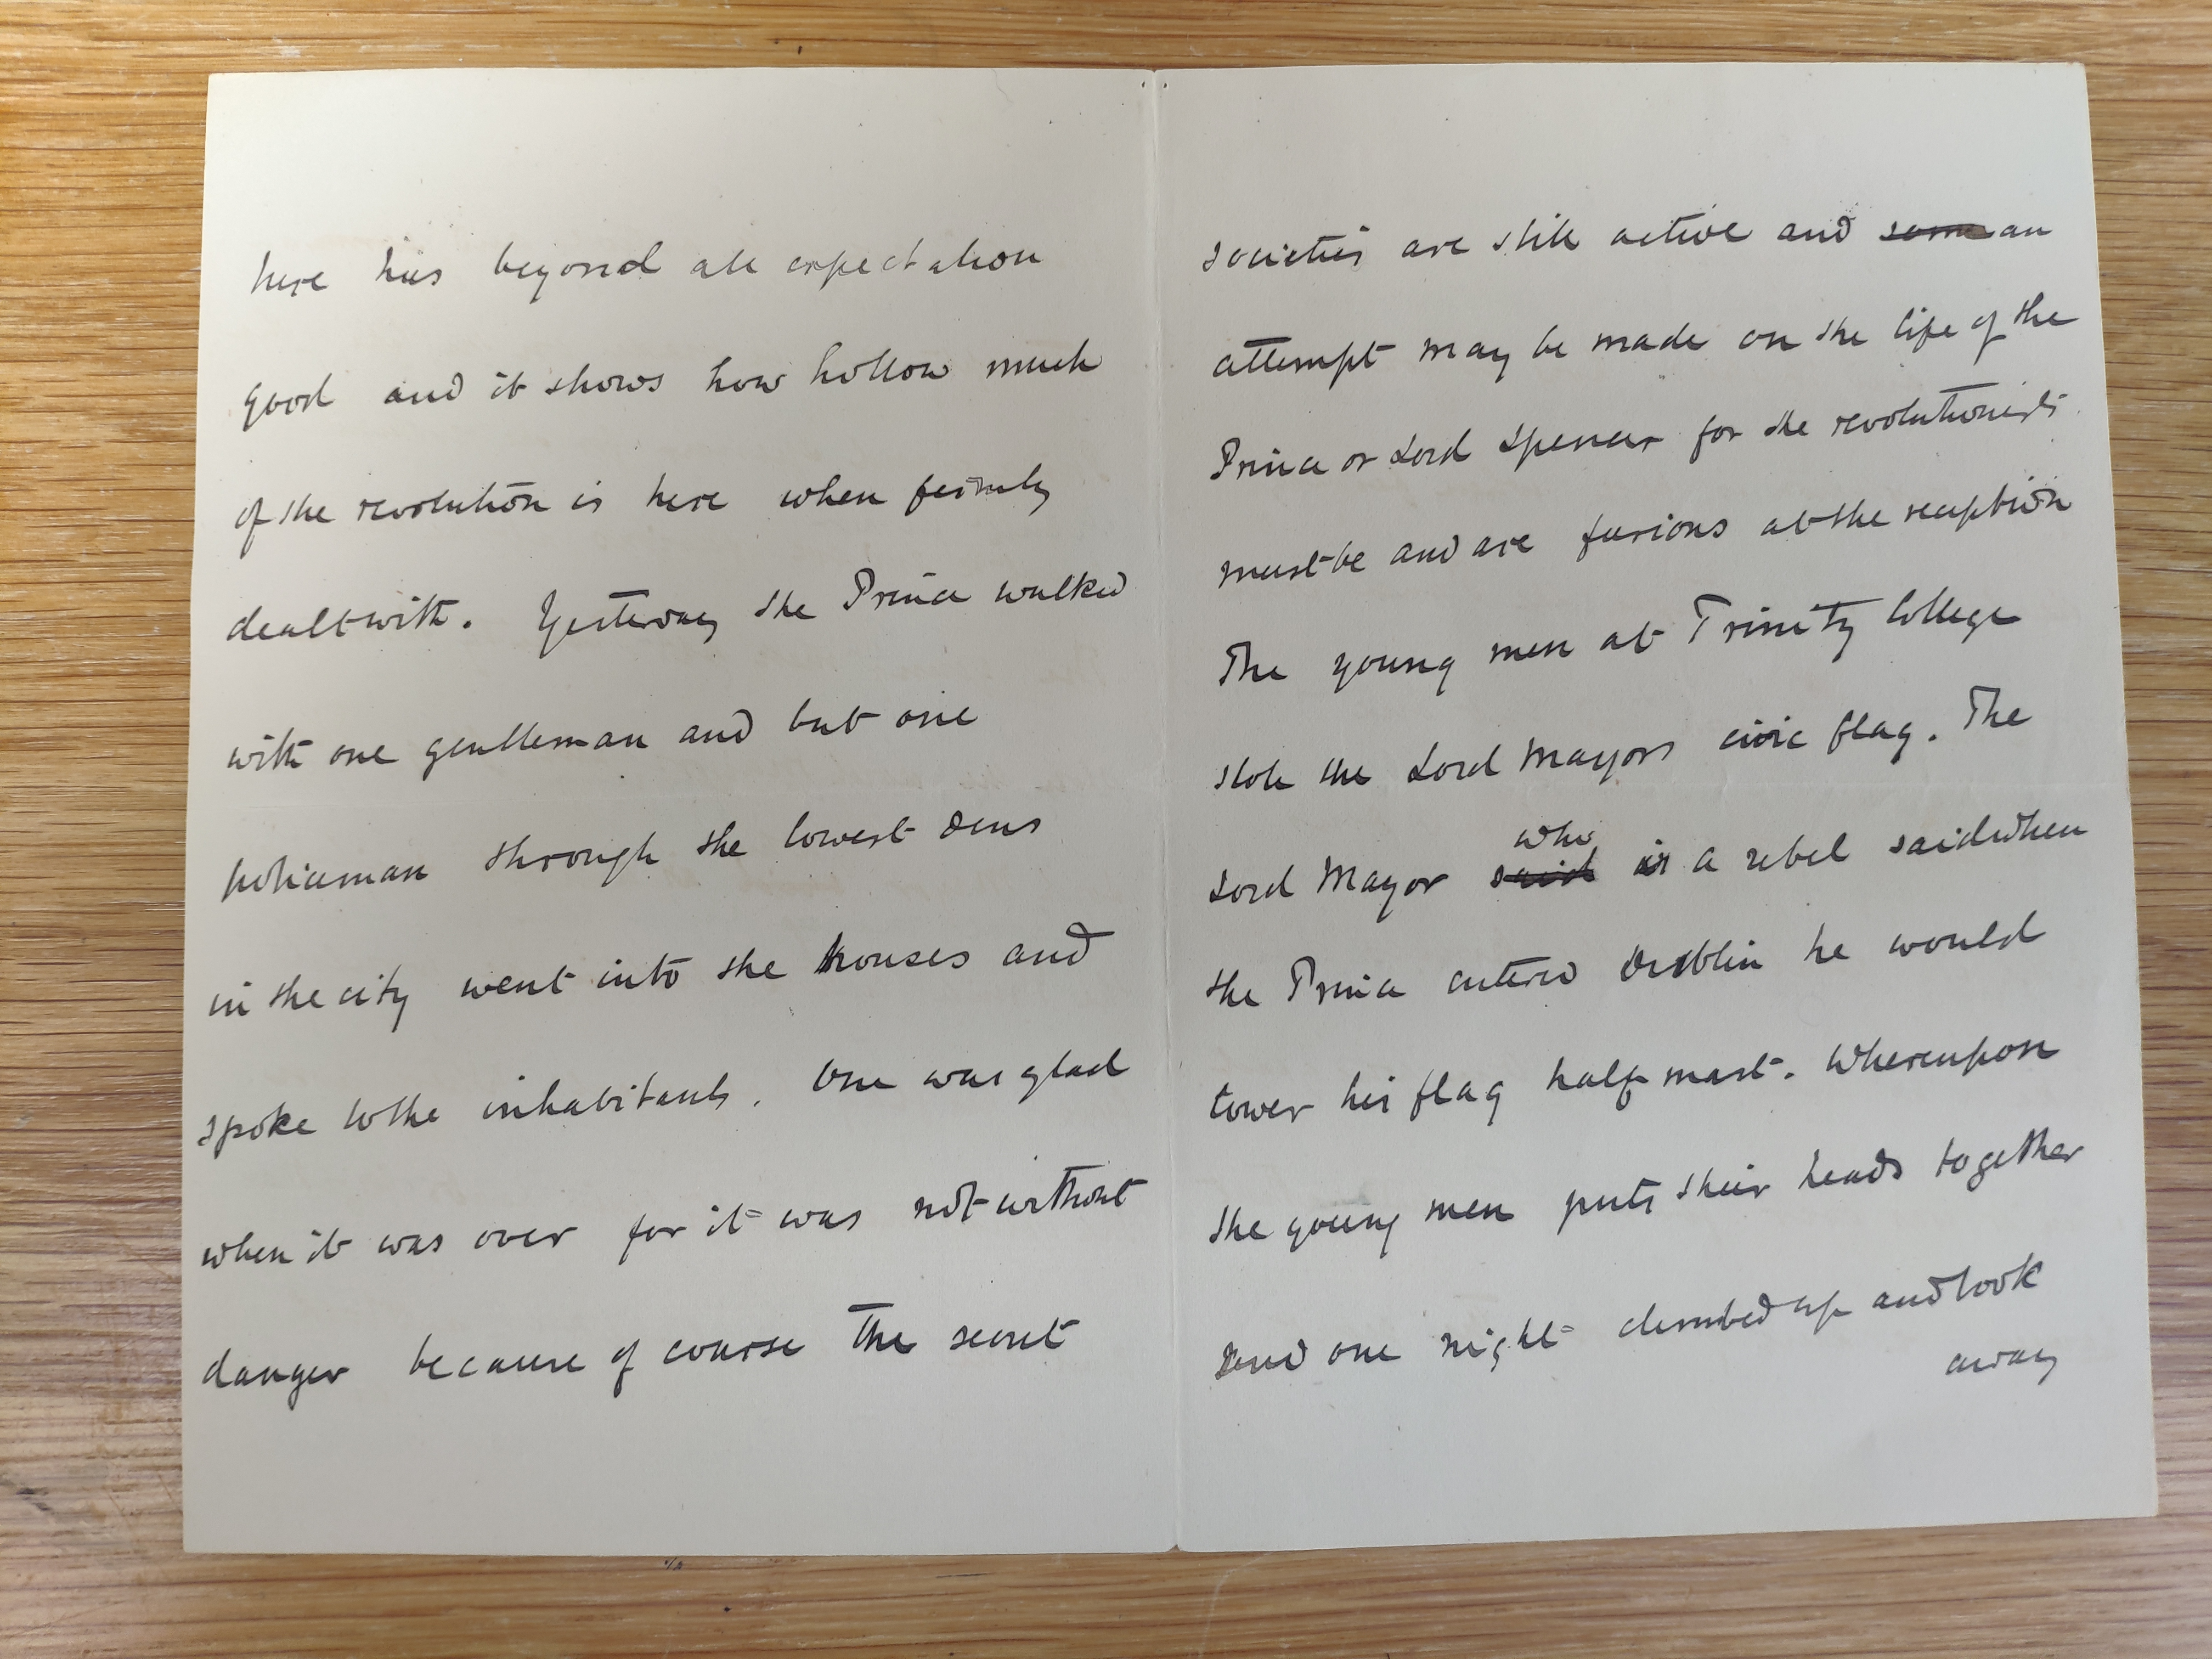 here has beyond all expectation
good and it shows how hollow much
of the revolution is here when firmly
dealt with. Yesterday the Prince walked
with one gentleman and but one
policeman through the lowest dens
in the city went into the houses and
spoke to the inhabitants. One was glad
when it was over for it was not without
danger because of course the secret
societies are still active and some an
attempt may be made on the life of the
Prince or Lord Spencer for the revolutionists
must be and are furious at the reception
The young men at Trinity College
stole the Lord Mayors civic flag. The
who
Lord Mayor said is a rebel said when
the Prince entered Dublin he would
lower his flag half mast. Whereupon
the young men puts their heads together
and one night climbed up and took
away